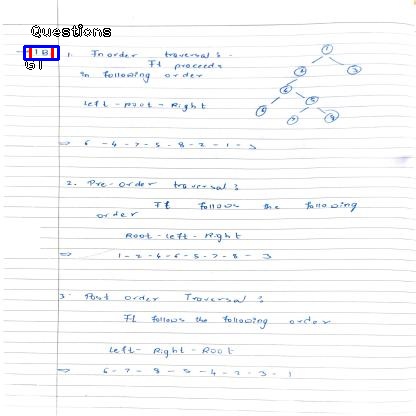 Questions
1B
GT
1. Inorder traversal :-
It proceeds
in following order
Left - Root - Right
⇒ 6 - 4 - 7 - 5 - 8 - 2 - 1 - 3
2. Pre-order traversal :
It follows the following
order
Root - Left - Right
⇒ 1 - 2 - 4 - 6 - 5 - 7 - 8 - 3
3. Post order Traversal :
It follows the following order
Left - Right - Root
⇒ 6 - 7 - 8 - 5 - 4 - 2 - 3 - 1
1
3
5